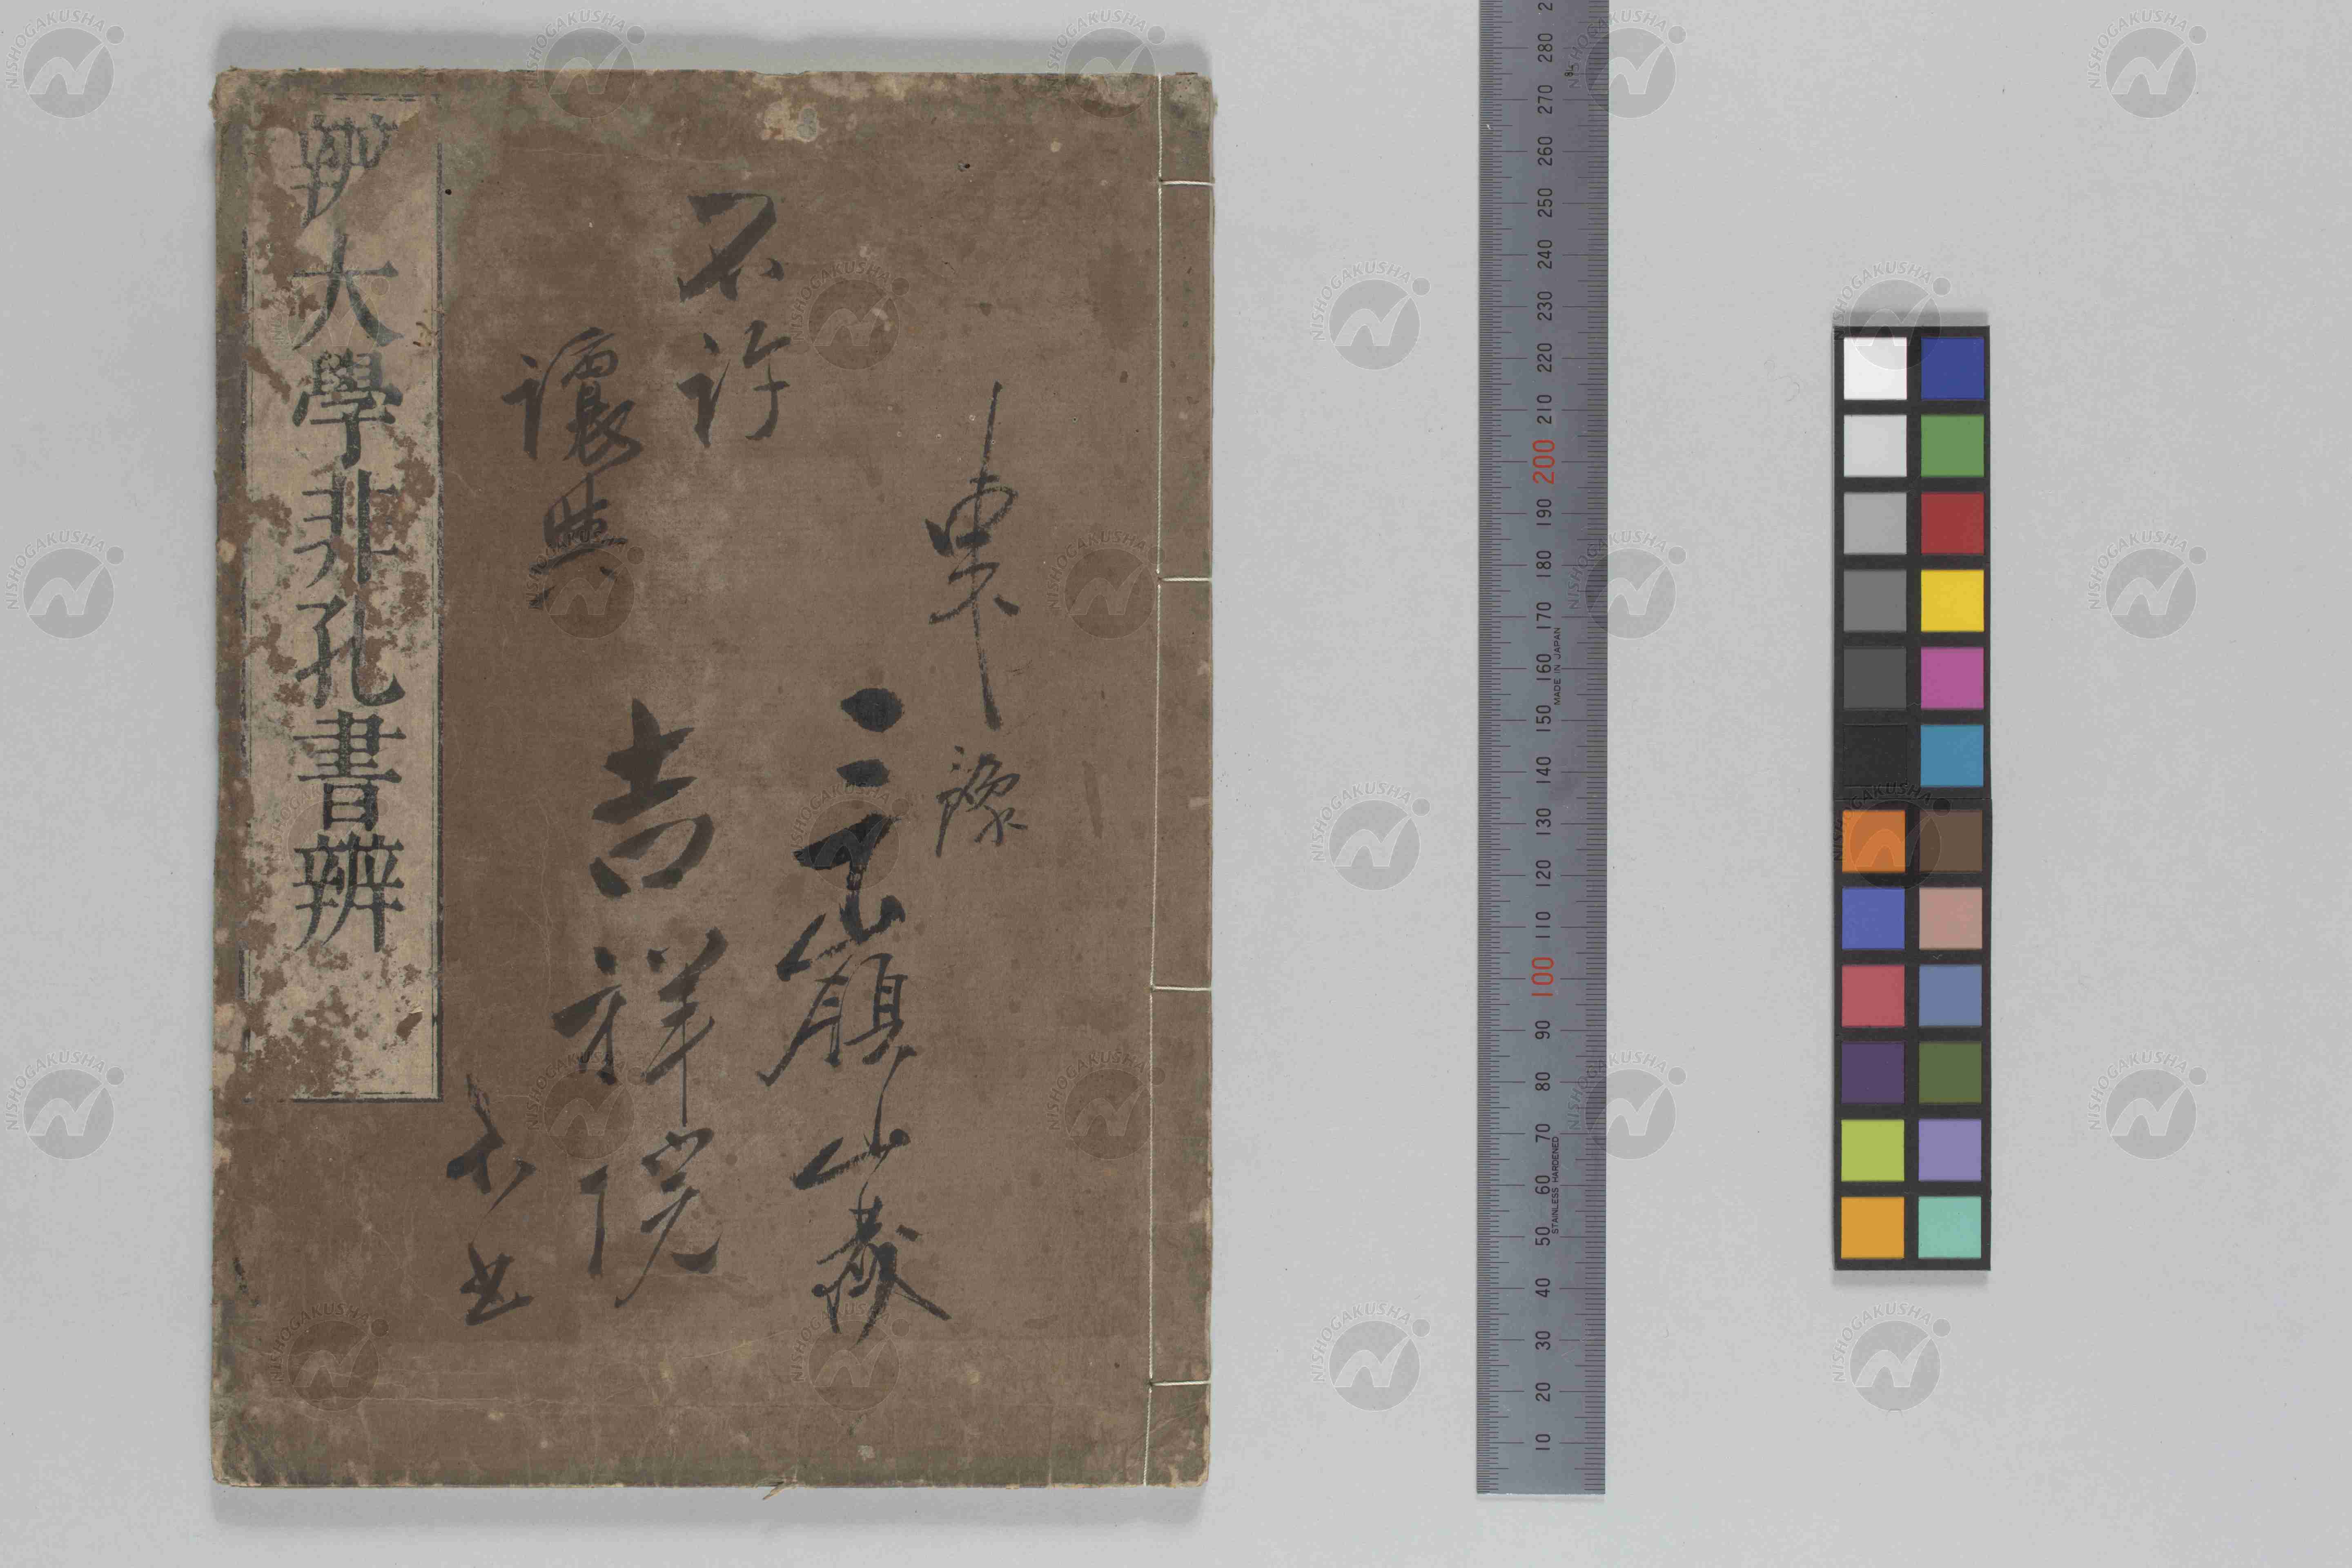 東豫
嶺山
不許
讓與
吉祥院
辨大學非孔書辨
280
270
260
250
240
230
220
210
200
190
180
170
160
150
140
130
120
110
100
90
80
70
60
50
40
30
20
10
MADE IN JAPAN
STAINLESS HARDENED
NISHOGAKUSHA